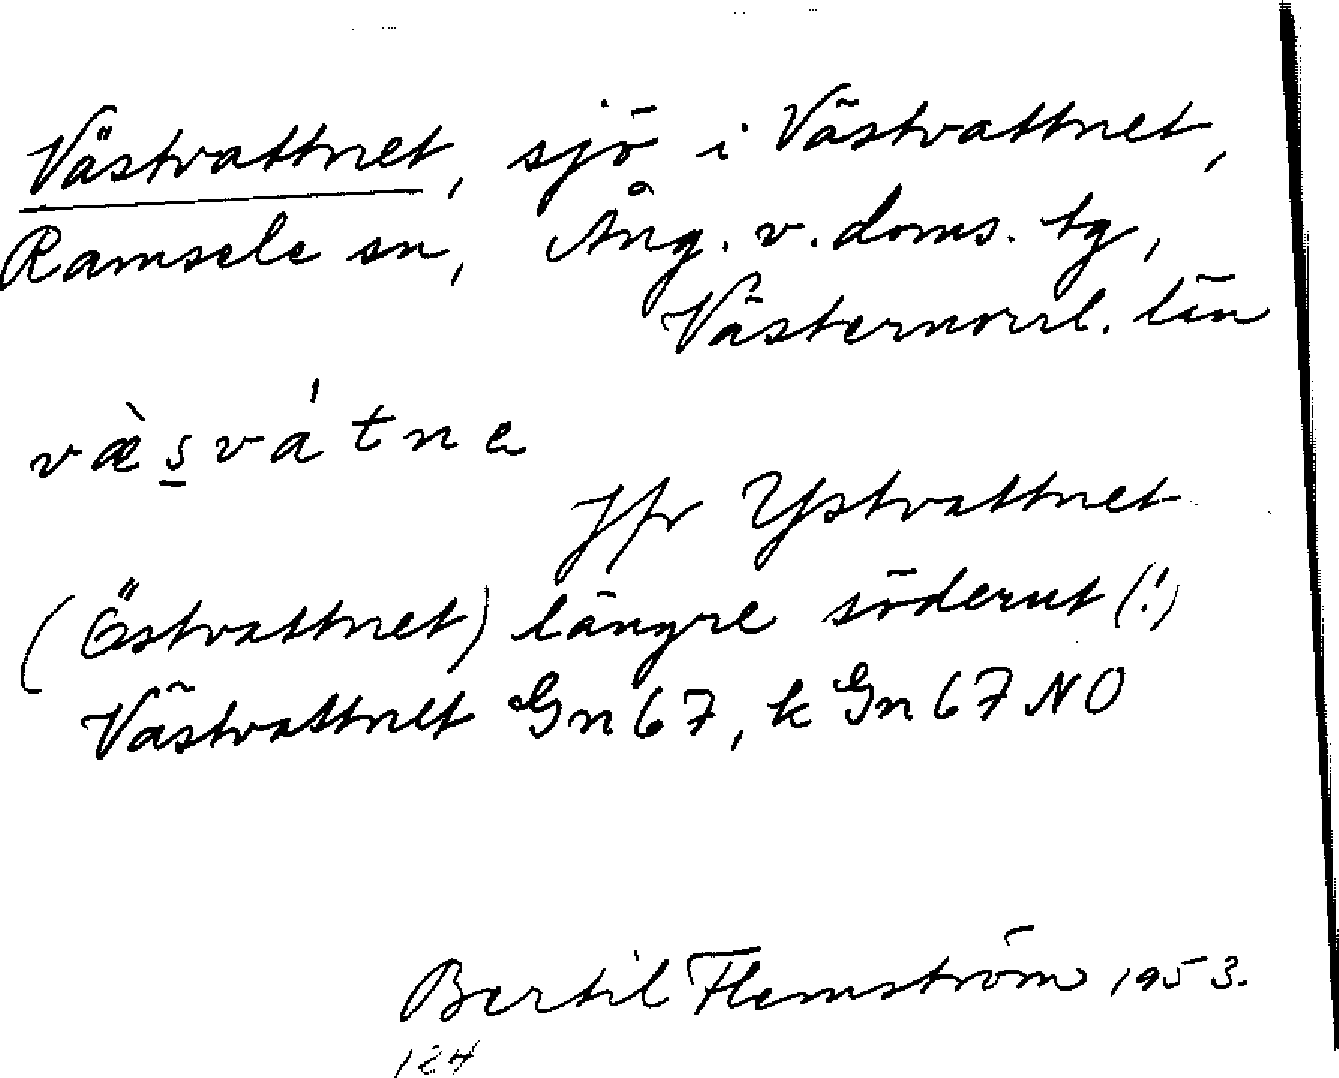 Västvattnet, sjö i Västvattnet,
Ramsele sn, Ång. v. doms. tg,
Västernorrl. län
væ̀s̲vátne
Jfr Ystvattnet
(Östvattnet) längre söderut (!)
Västvattnet Gn 67, k Gn 67 NO
Bertil Flemström 1953.
124